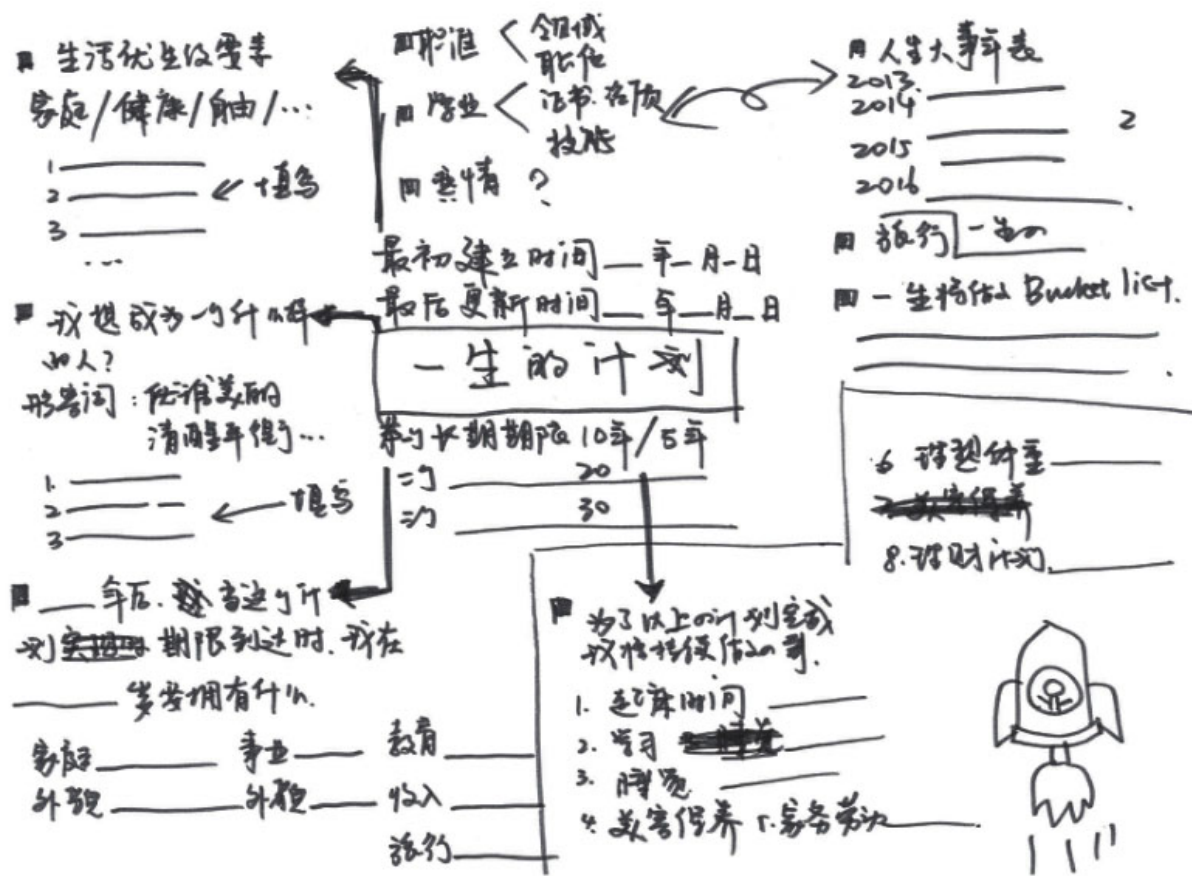 生活优先级要素
家庭/健康/自由/...
1
2 填写
3
...
我想成为一个什么样
的人?
形容词:优雅美丽
清醒
1.
2. 填写
3
年后,当这个计
划 期限到达时,我在
岁要拥有什么.
家庭 事业 教育
外貌 外貌 收入
旅行
职业 领域
职位
学业 证书.资质
技能
爱情 ?
最初建立时间 年 月 日
最后更新时间 年 月 日
一生的计划
第一个长期期限10年/5年
二个 20
三个 30
人生大事年表
2013.
2014
2
2015
2016
旅行 一生的
一生将做的Bucket list.
6 理想体重
8.理财计划
为了以上的计划完成
我将持续做的事.
1. 起床时间
2. 学习
3. 睡觉
4. 美容保养 5.家务劳动